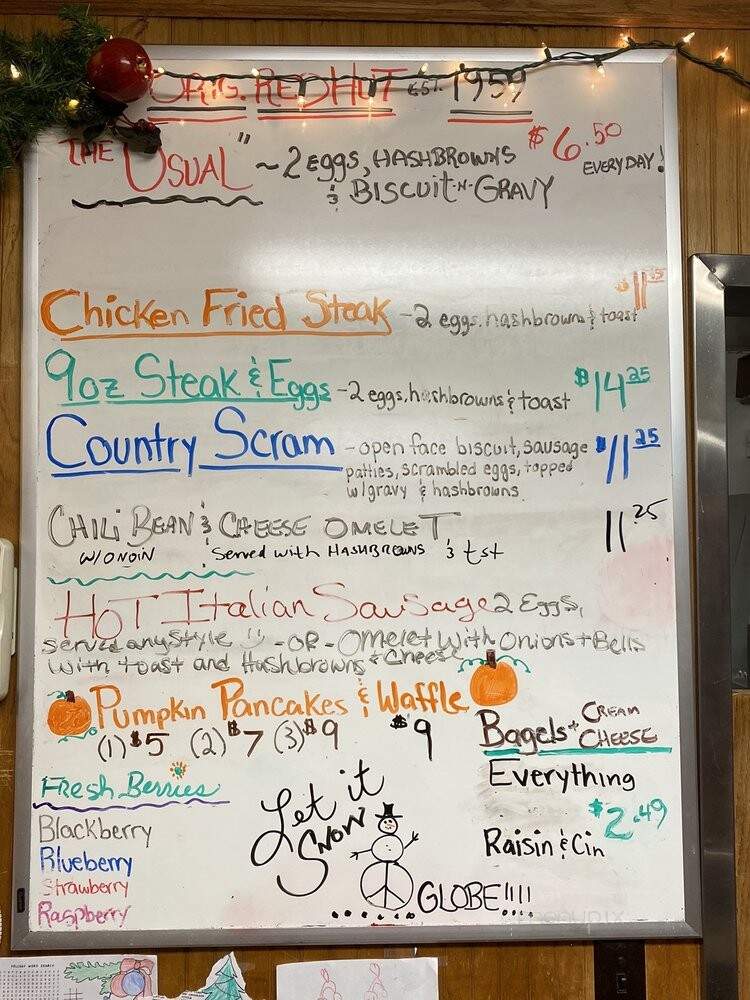 ORIG. RED HUT EST. 1959
THE "USUAL" ~ 2 EGGS, HASHBROWNS $6.50
& BISCUIT-N-GRAVY EVERYDAY!
Chicken Fried Steak - 2 eggs, hashbrowns & toast
9oz Steak & Eggs - 2 eggs, hashbrowns & toast $14.25
Country Scram - open face biscuit, sausage $11.25
patties, scrambled eggs, topped
w/gravy & hashbrowns
CHILI BEAN & CHEESE OMELET 11.25
W/ONOIN Served with HASHBROWNS & tst
HOT Italian Sausage 2 Eggs,
served any style - OR - Omelet with Onions + Bells
with toast and Hashbrowns + Cheese
Pumpkin Pancakes & Waffle
(1) $5 (2) $7 (3) $9 $9
Bagels + CREAM CHEESE
Everything
$2.49
Raisin & Cin
Fresh Berries
Blackberry
Blueberry
Strawberry
Raspberry
Let it
SNOW
GLOBE!!!!